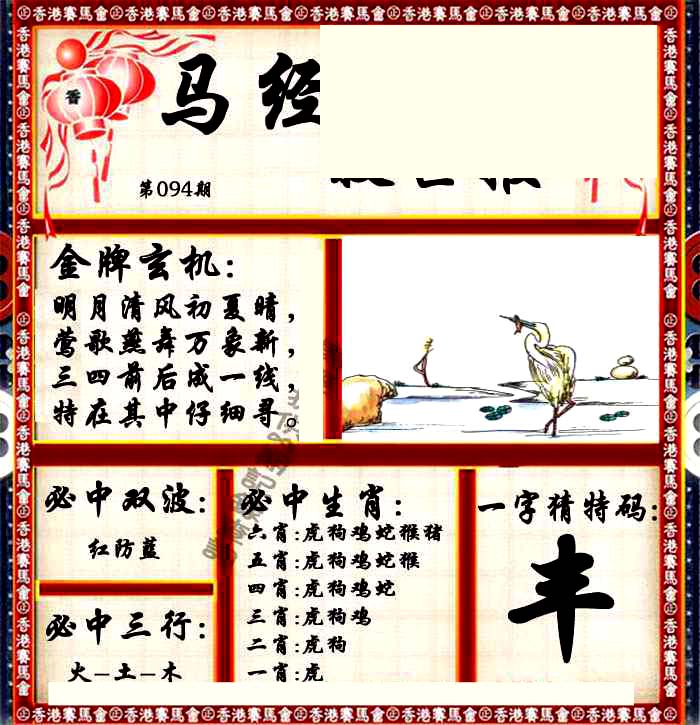 ㊣香港賽馬會㊣香港賽馬會㊣香港賽馬會㊣香港賽馬會㊣香港賽馬會㊣香港賽馬會㊣香港賽馬會㊣
香
马经
第094期
金牌玄机:
明月清风初夏晴，
莺歌燕舞万象新，
三四前后成一线，
特在其中仔细寻。
必中双波:
红防蓝
必中三行:
火－土－木
必中生肖:
六肖:虎狗鸡蛇猴猪
五肖:虎狗鸡蛇猴
四肖:虎狗鸡蛇
三肖:虎狗鸡
二肖:虎狗
一肖:虎
一字猜特码:
丰
㊣香港賽馬會㊣香港賽馬會㊣香港賽馬會㊣香港賽馬會㊣香港賽馬會㊣香港賽馬會㊣香港賽馬會㊣